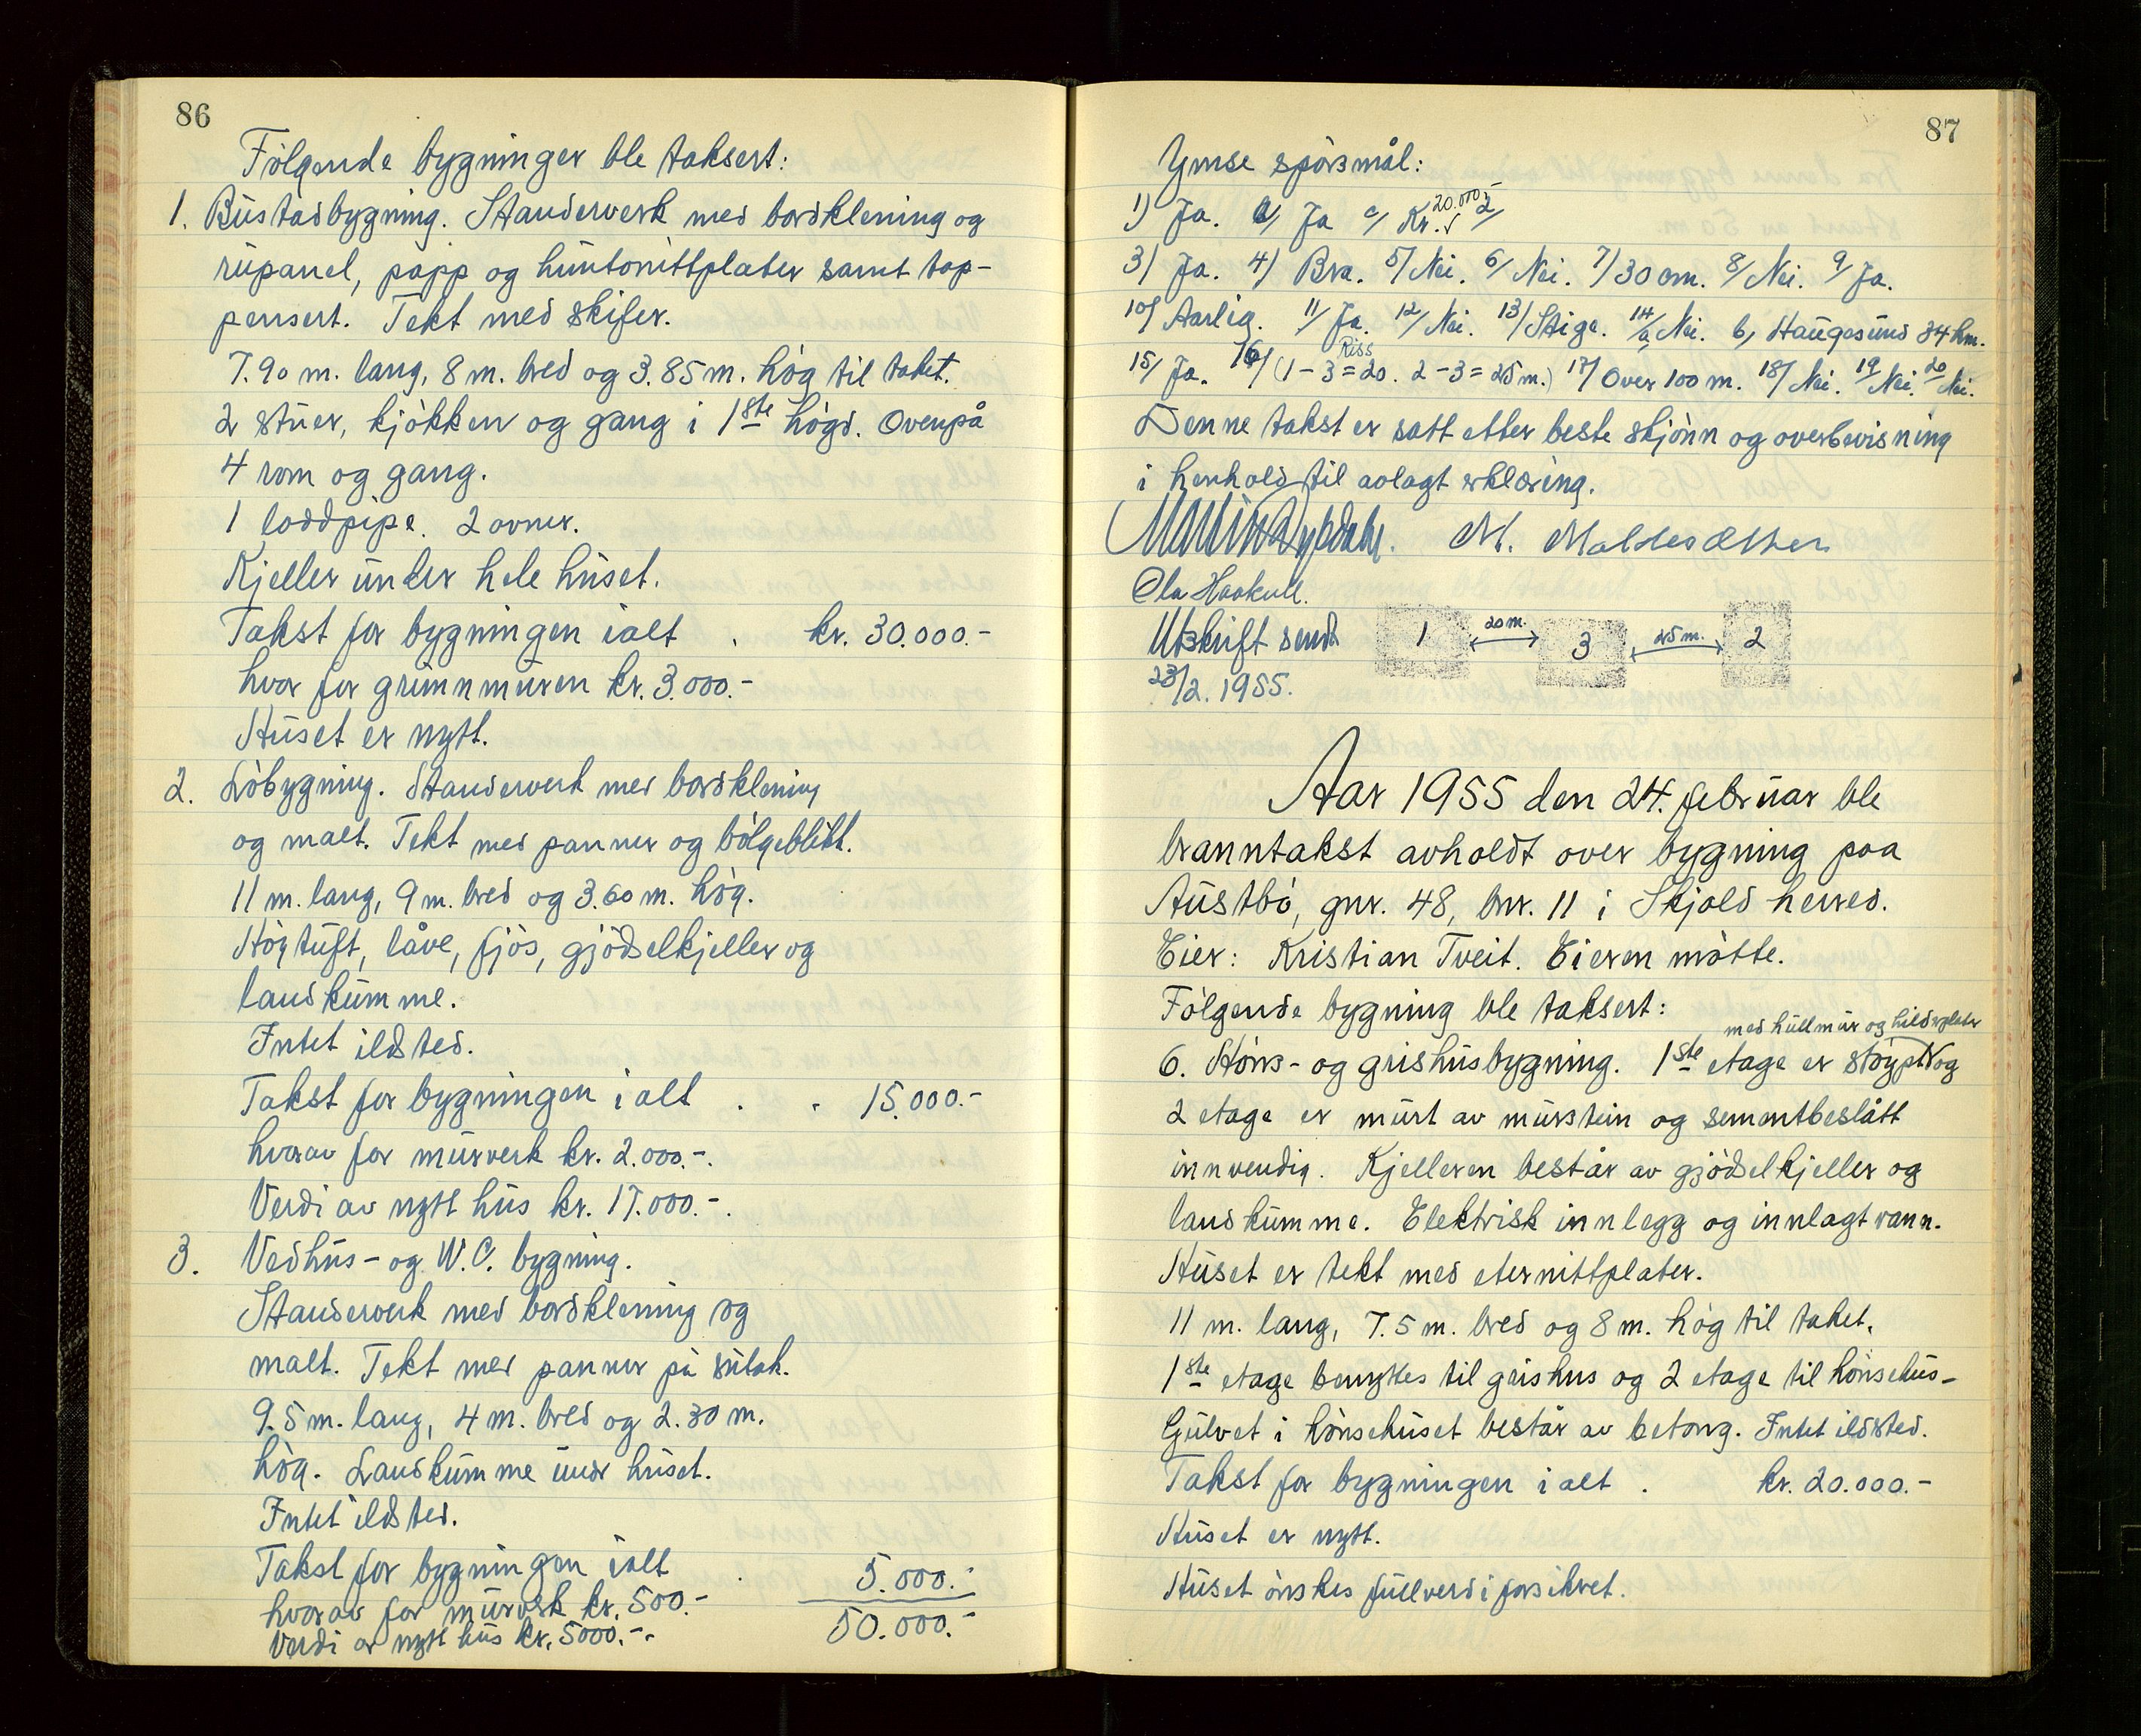 86
Følgende bygninger ble taksert:
1. Bustadbygning. Standerverk med bordklening og
rupanel, papp og huntonittplater samt tap-
pensert. Tekt med skifer.
7.90 m. lang, 8 m. bred og 3.85 m. høg til taket.
2 stuer, kjøkken og gang i 1ste høgd. Ovenpå
4 rom og gang.
1 loddpipe. 2 ovner.
Kjeller under hele huset.
Takst for bygningen ialt . kr. 30.000.-
hvor for grunnmuren kr. 3.000.-
Huset er nytt.
2. Løbygning. Standerverk med bordklening
og malt. Tekt med panner og bølgeblikk.
11 m. lang, 9 m. bred og 3.60 m. høg.
Høytuft, låve, fjøs, gjødselkjeller og
landkumme.
Intet ildsted.
Takst for bygningen ialt . . 15.000.-
hvorav for murverk kr. 2.000.-.
Verdi av nytt hus kr. 17.000.-.
3. Vedhus- og W.C. bygning.
Standerverk med bordklening og
malt. Tekt med panner på sutak.
9.5 m. lang, 4 m. bred og 2.30 m.
høg. Landkumme under huset.
Intet ildsted.
Takst for bygningen ialt . 5.000.-
hvorav for murverk kr. 500.-
Verdi av nytt hus kr. 5000.-. 50.000.-
87
Ymse spørsmål:
1) Ja. b/ Ja c/ Kr. 20.000.- 2/
3) Ja. 4) Bra. 5/ Nei. 6/ Nei. 7/ 30 cm. 8/ Nei. 9/ Ja.
10/ Aarlig. 11/ Ja. 12/ Nei. 13/ Stige. 14/a Nei. b, Haugesund 34 km.
15/ Ja. 16/ Riss (1-3=20. 2-3=25 m.) 17/ Over 100 m. 18/ Nei. 19/ Nei. 20/ Nei.
Denne takst er satt etter beste skjønn og overbevisning
i henhold til avlagt erklæring.
M. Maldesæther
Ola Haakull.
Utskrift sendt 1 20 m. 3 25 m. 2
23/2. 1955.
Aar 1955 den 24. februar ble
branntakst avholdt over bygning paa
Austbø, gnr. 48, bnr. 11 i Skjold herred.
Eier: Kristian Tveit. Eieren møtte.
Følgende bygning ble taksert:
med hullmur og
6. Høns- og grishusbygning. 1ste etage er støypt og
2 etage er murt av murstein og sementbeslått
innvendig. Kjelleren består av gjødselkjeller og
landkumme. Elektrisk innlegg og innlagt vann.
Huset er tekt med eternittplater.
11 m. lang, 7.5 m. bred og 8 m. høg til taket.
1ste etage benyttes til grishus og 2 etage til hønsehus-
Gulvet i hønsehuset består av betong. Intet ildsted.
Takst for bygningen ialt . kr. 20.000.-
Huset er nytt.
Huset ønskes fullverdi forsikret.